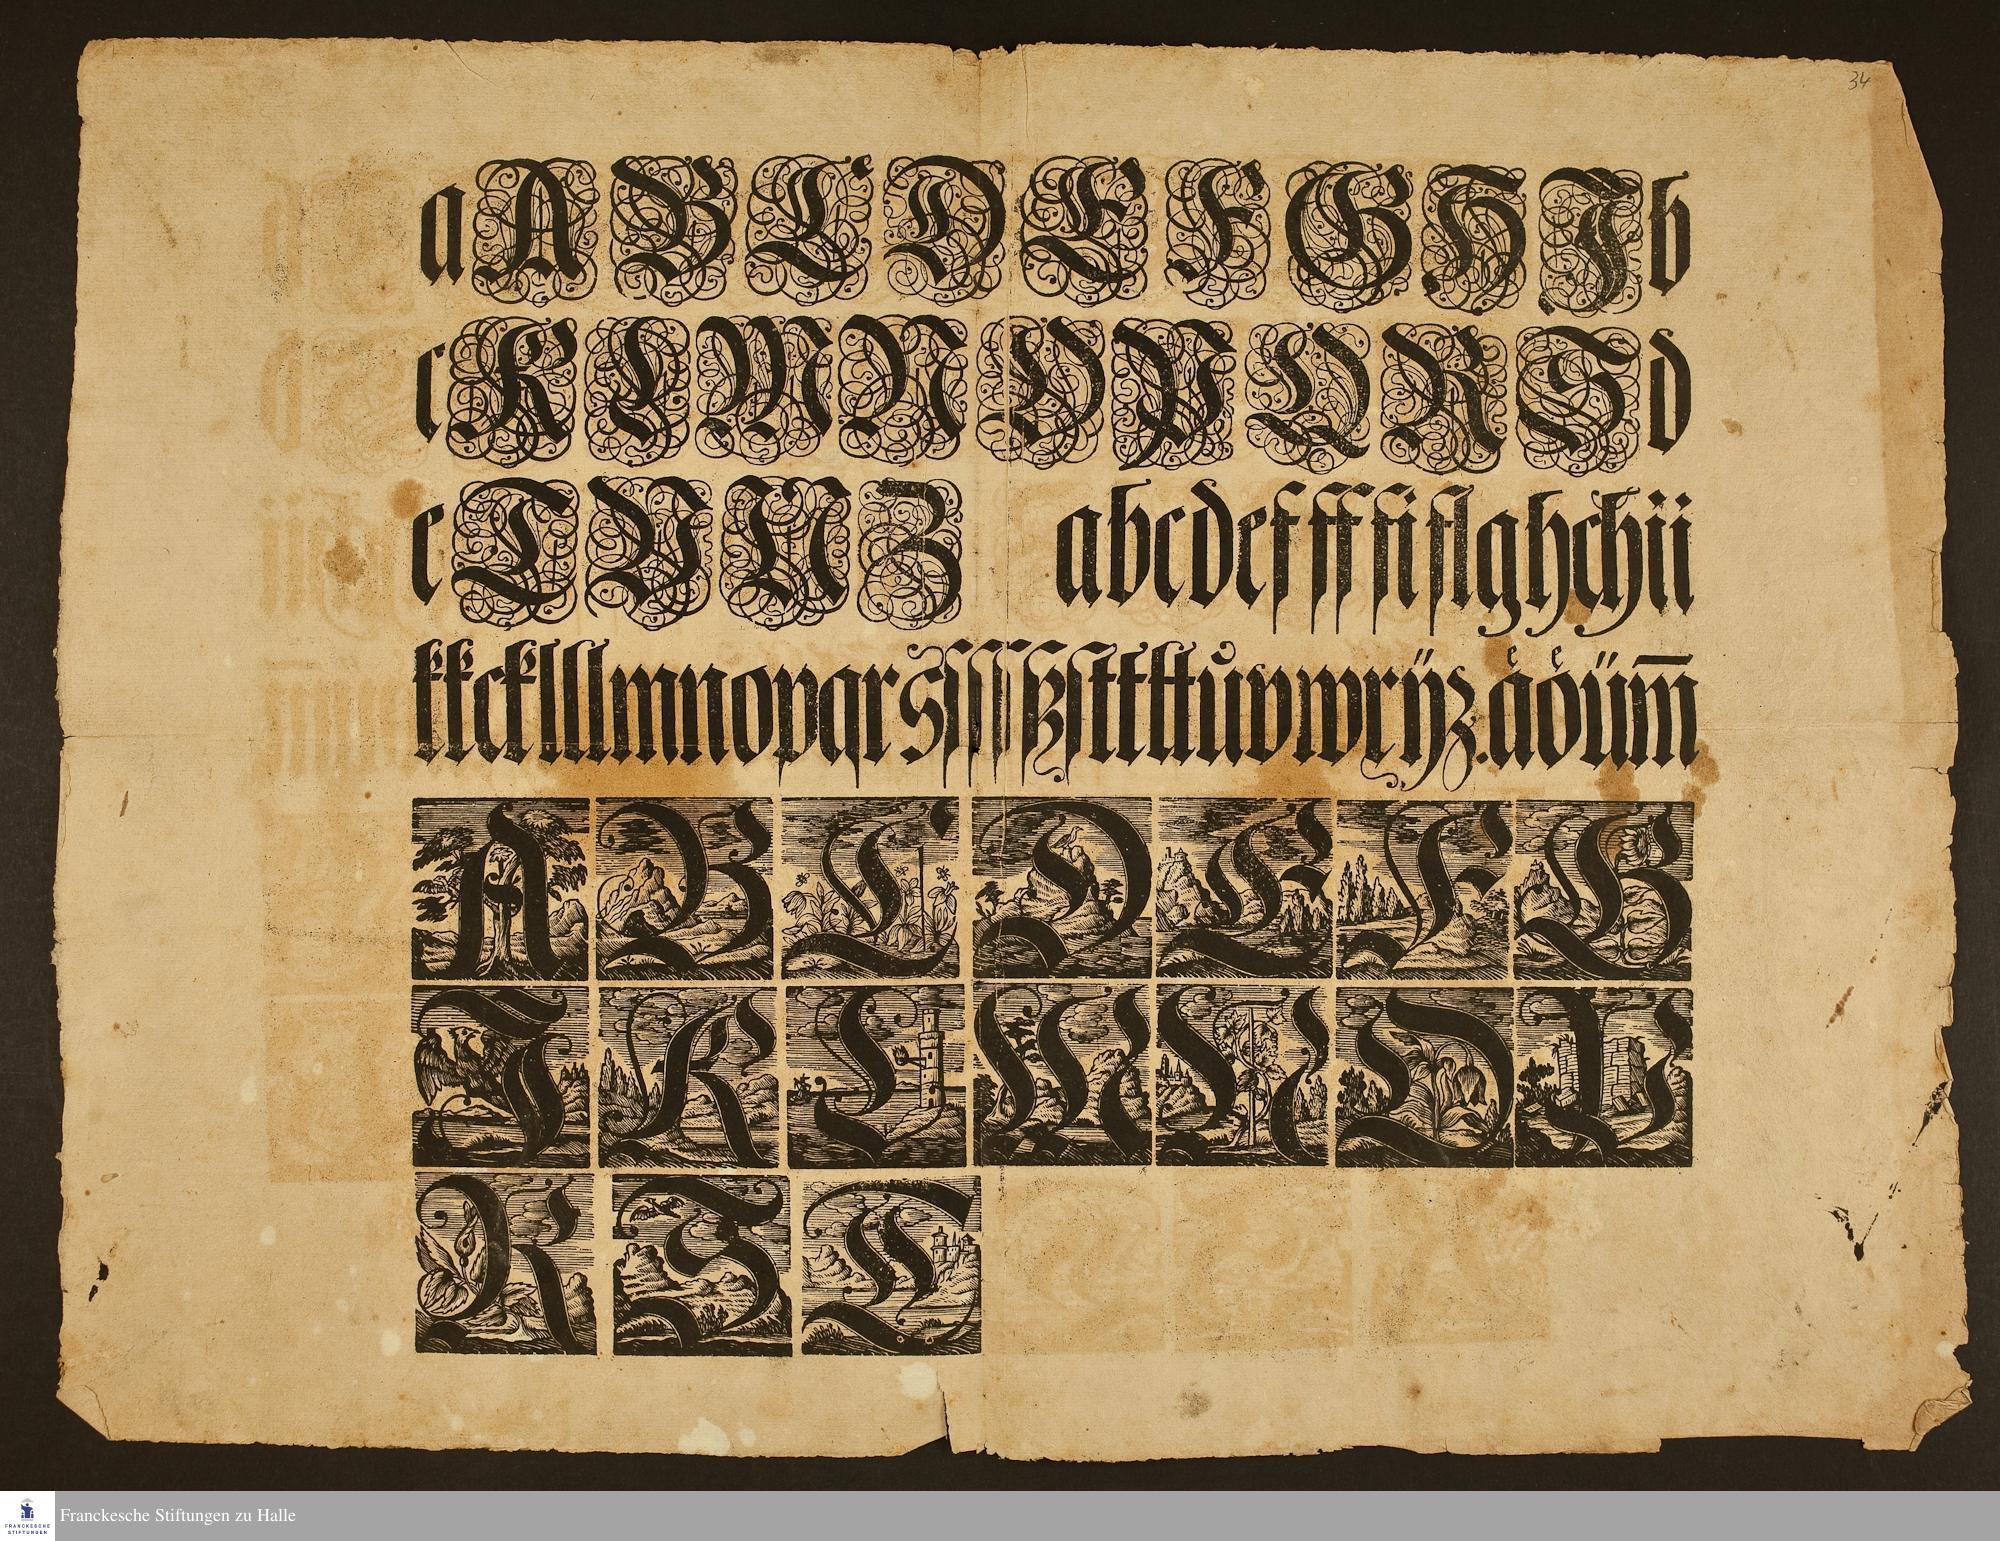 34
a A B C D E F G H J b
c K L M N O P Q R S d
e T V W Z a b c d e f ff fi fl g h ch i i
k k ck l l l m n o p q r s ſ ſſ ß ſt t t tt ů v w x ÿ z . aͤ oͤ ü m̅
A B C D E F G
J K L M N O P
R S T
FRANCKESCHE
STIFTUNGEN
Franckesche Stiftungen zu Halle